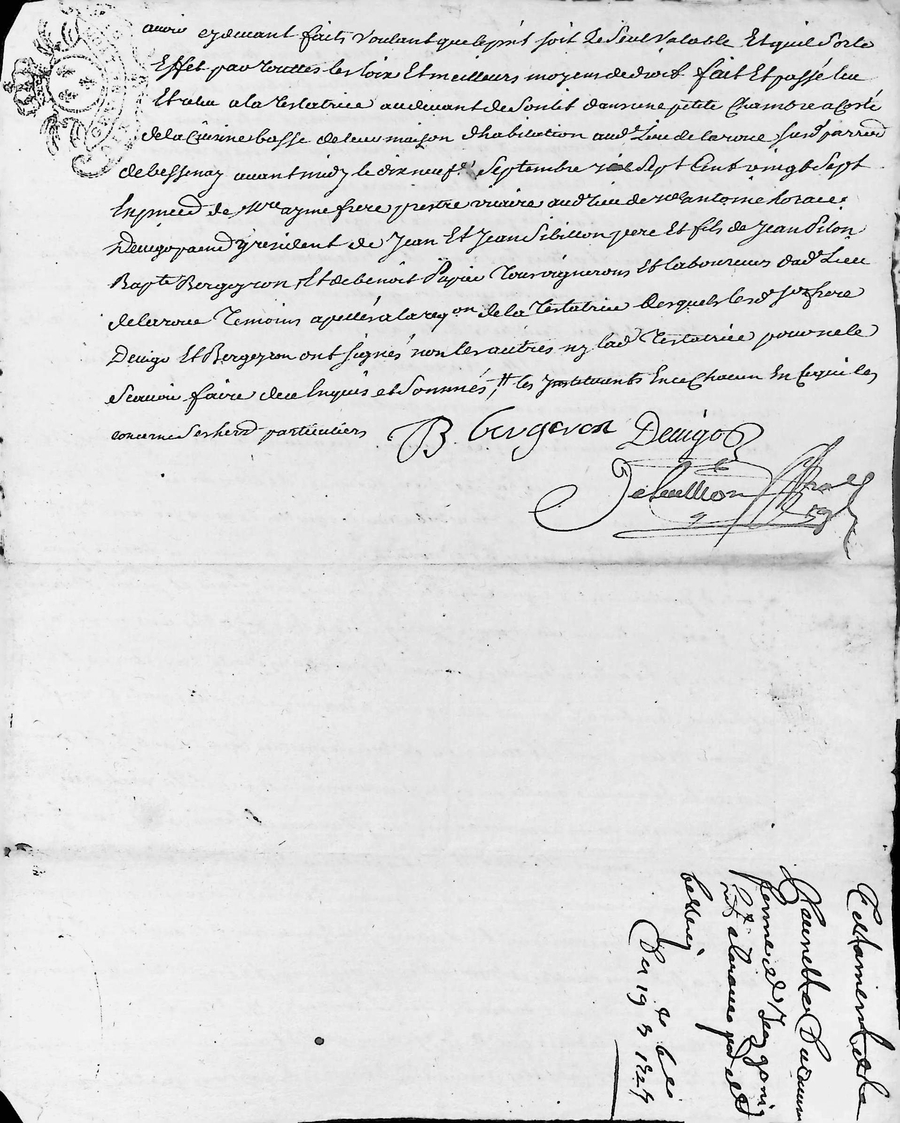 avoir cydevant faits voulant que le pnt soit le seul valable Et quil sorte
Effet par touttes les loix Et meilleurs moyens de droit fait Et passé leu
Et releu a la testatrice audevant de son lit dans une petite chambre a costé
de la cuisine basse de leur maison d'habitation aud. Lieu de laroue susd. parr
de bessenay avant midy le dix neuf septembre sept cent vingt sept
En pnce de Mre ayme frere prestre vicaire aud. Lieu de antoine
Denigo de Jean Et Jean Sibillon pere Et fils de Jean Pilon
Bapte Bergeron Et de benoit Papin tous vignerons Et laboureurs dud. Lieu
de laroue temoins apellés a la reqon de la testatrice desquels les d. frere
Denigo Et Bergeron ont signés non les autres ny lad. testatrice pour ne le
scavoir faire de ce Enquis et sommés les Ence chacun En ce qui les
concerne particuliers
B. bergeron Denigo
Testament de la
femme d.
a laroue
bessenay
Du 19 7bre
1727